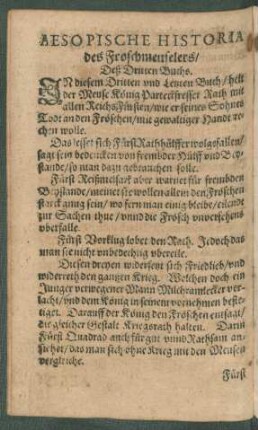 AESOPISCHE HISTORIA
des Froschmeuselers/
Deß Dritten Buchs.
IN diesem Dritten und Letzten Buch/ helt
der Meuse König Parteckfresser Rath mit
allen Reichs Fürsten/ wie er seines Sohnes
Todt an den Fröschen/ mit gewaltiger Handt rechen wolle.
Das lesset sich Fürst wolgefallen/
sagt sein bedencken von frembder Hülff und Beystande/ so man dazu gebrauchen solle.
Fürst aber warnet für frembden
Beystande/ meinet sie wollen allein den Fröschen
starck gnug sein/ wo fern man einig bleibe/ eilends
zur Sachen thue/ unnd die Frösch unversehens
uberfalle.
Fürst Vorklug lobet den Rath. Jedoch das
man sie nicht unbedechtig ubereile.
Diesen dreyen widersetzt sich Friedlieb/ und
widerreth den gantzen Krieg. Welchen doch ein
Junger verwegener Mann Milchramlecker verlacht/ und dem König in seinem vornehmen bestetiget. Darauff der König den Fröschen entsagt/
die gleicher Gestalt Kriegsrath halten. Darin
Fürst Quadrat auch für gut unnd Rathsam ansiehet/ das man sich ohne Krieg mit den Meusen
vergliche.
Fürst